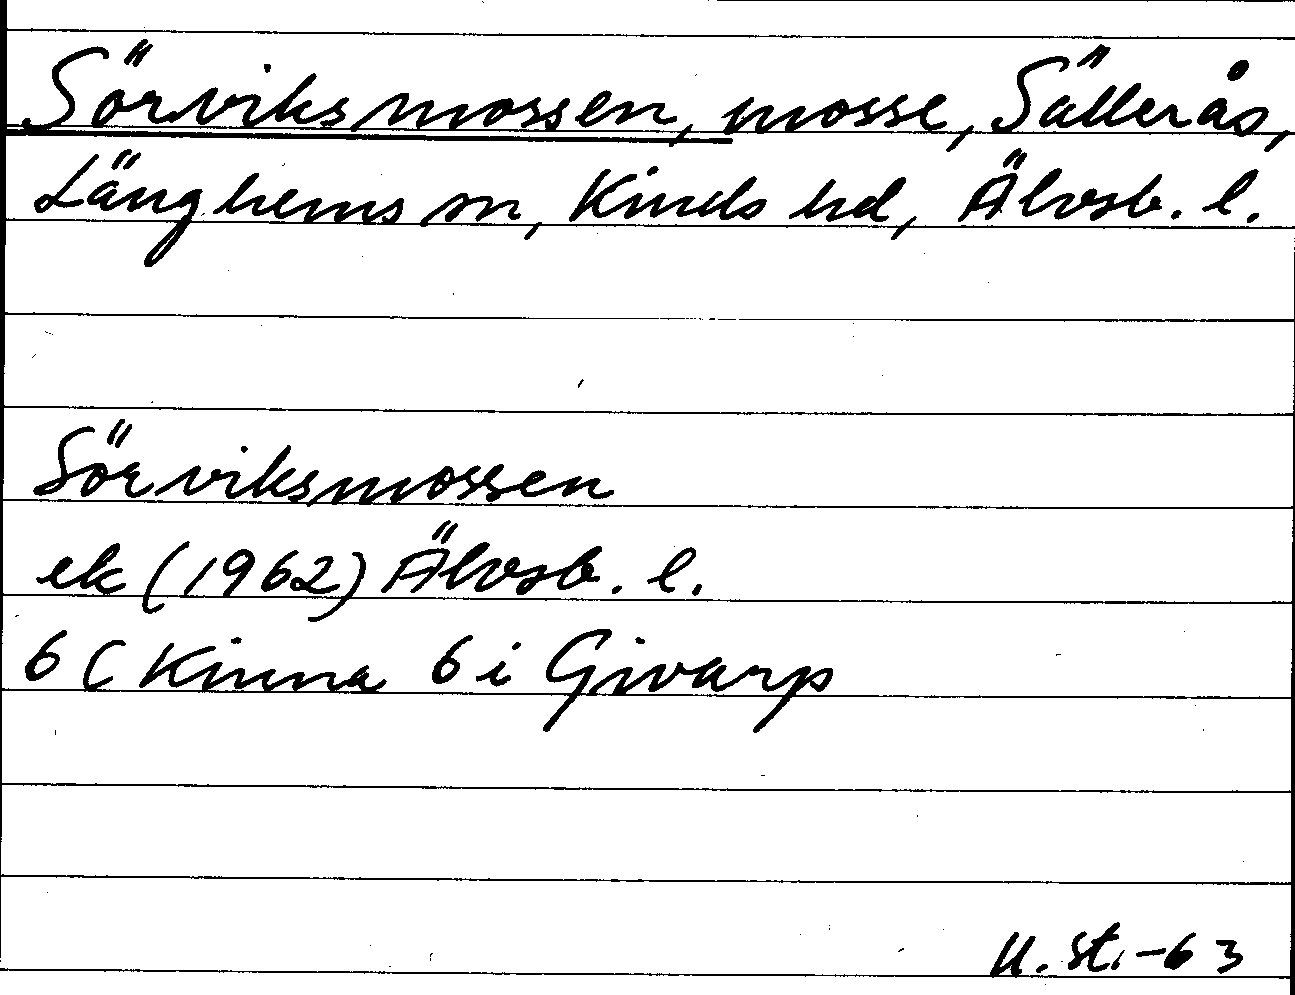 Sörviksmossen, mosse, Sällerås,
Länghems sn, Kinds hd, Älvsb. l.
Sörviksmossen
ek (1962) Älvsb. l.
6 C Kinna 6 i Givarp
U. St. -63